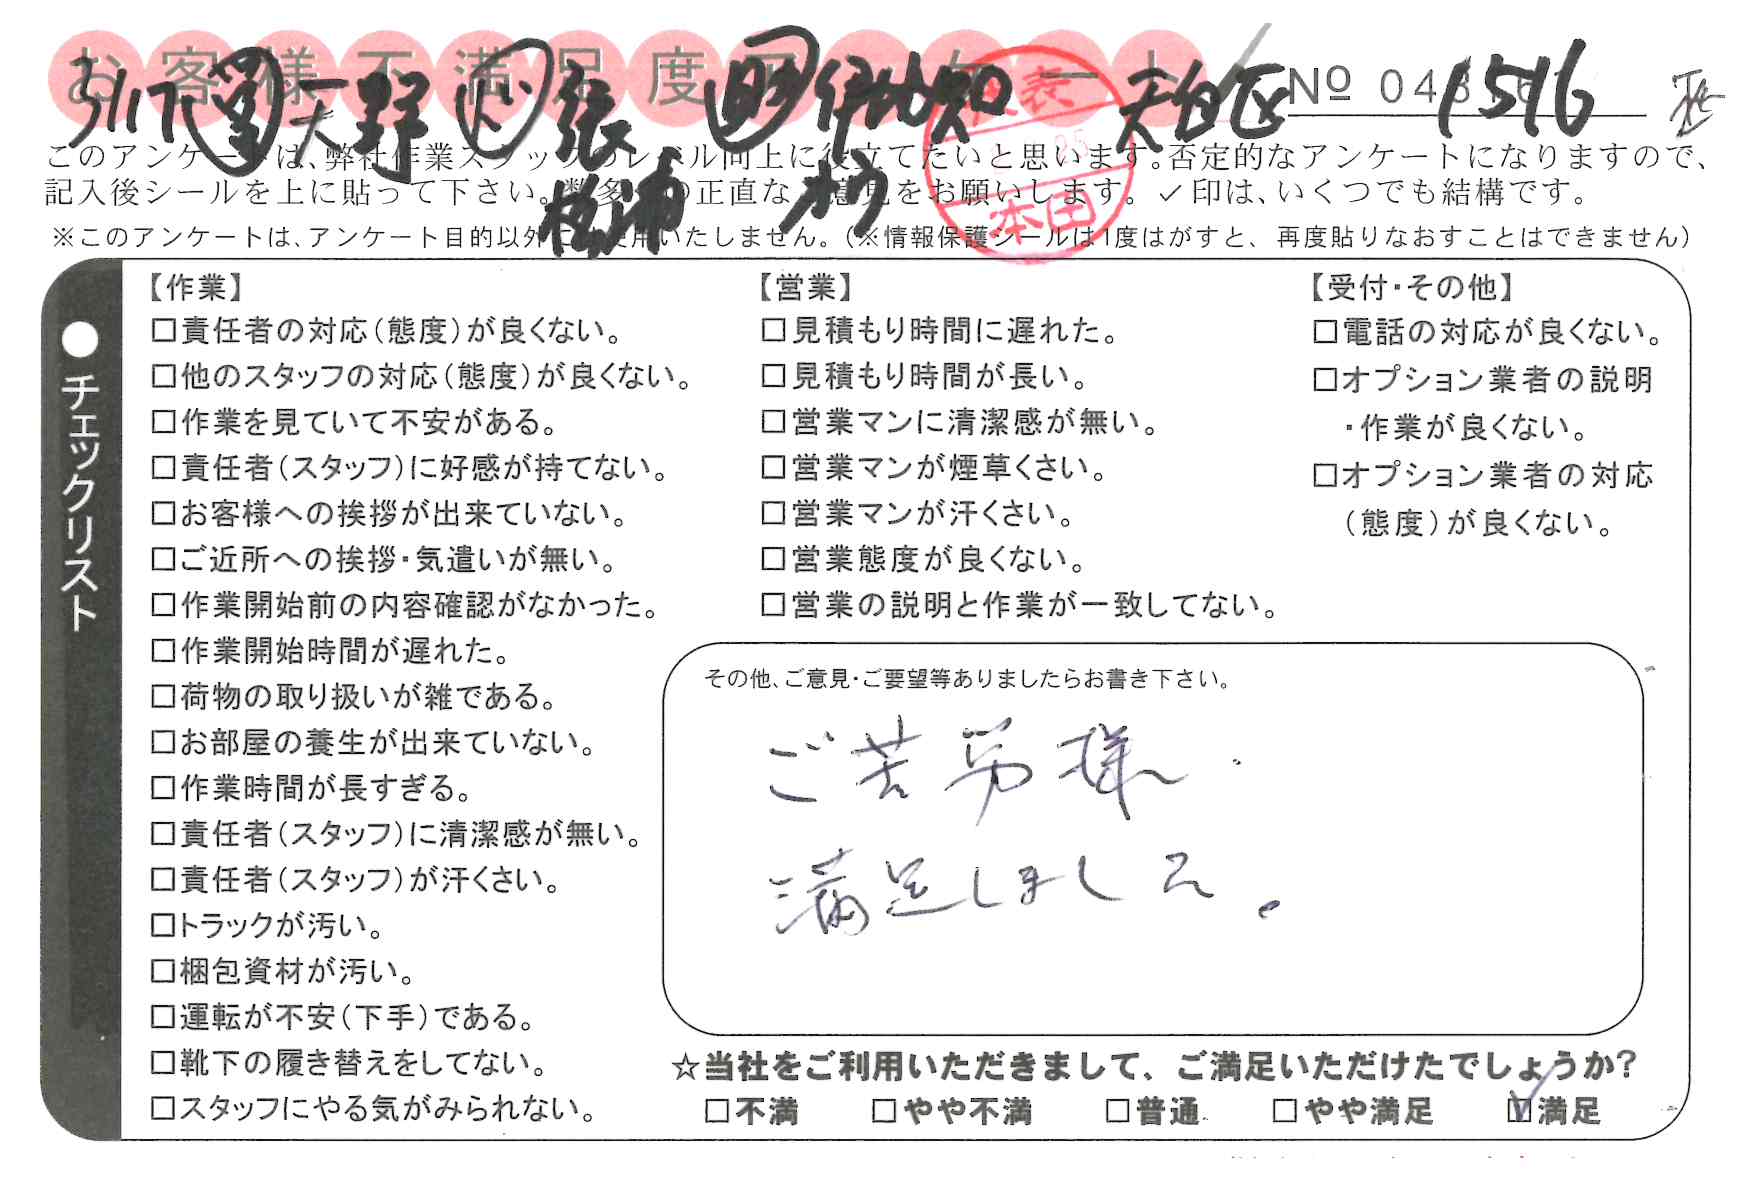 お客様不満足度アンケート
3/17 営 天野 張 伊比知 天白区 № 1516
梅浦 代表 本田
このアンケートは、弊社作業スタッフのレベル向上に役立てたいと思います。否定的なアンケートになりますので、
記入後シールを上に貼って下さい。数多くの正直なご意見をお願いします。✓印は、いくつでも結構です。
※このアンケートは、アンケート目的以外には使用いたしません。(※情報保護シールは1度はがすと、再度貼りなおすことはできません)
●チェックリスト
【作業】
□責任者の対応(態度)が良くない。
□他のスタッフの対応(態度)が良くない。
□作業を見ていて不安がある。
□責任者(スタッフ)に好感が持てない。
□お客様への挨拶が出来ていない。
□ご近所への挨拶・気遣いが無い。
□作業開始前の内容確認がなかった。
□作業開始時間が遅れた。
□荷物の取り扱いが雑である。
□お部屋の養生が出来ていない。
□作業時間が長すぎる。
□責任者(スタッフ)に清潔感が無い。
□責任者(スタッフ)が汗くさい。
□トラックが汚い。
□梱包資材が汚い。
□運転が不安(下手)である。
□靴下の履き替えをしてない。
□スタッフにやる気がみられない。
【営業】
□見積もり時間に遅れた。
□見積もり時間が長い。
□営業マンに清潔感が無い。
□営業マンが煙草くさい。
□営業マンが汗くさい。
□営業態度が良くない。
□営業の説明と作業が一致してない。
【受付・その他】
□電話の対応が良くない。
□オプション業者の説明
・作業が良くない。
□オプション業者の対応
(態度)が良くない。
その他、ご意見・ご要望等ありましたらお書き下さい。
ご苦労様
満足しました。
☆当社をご利用いただきまして、ご満足いただけたでしょうか?
□不満 □やや不満 □普通 □やや満足 ☑満足